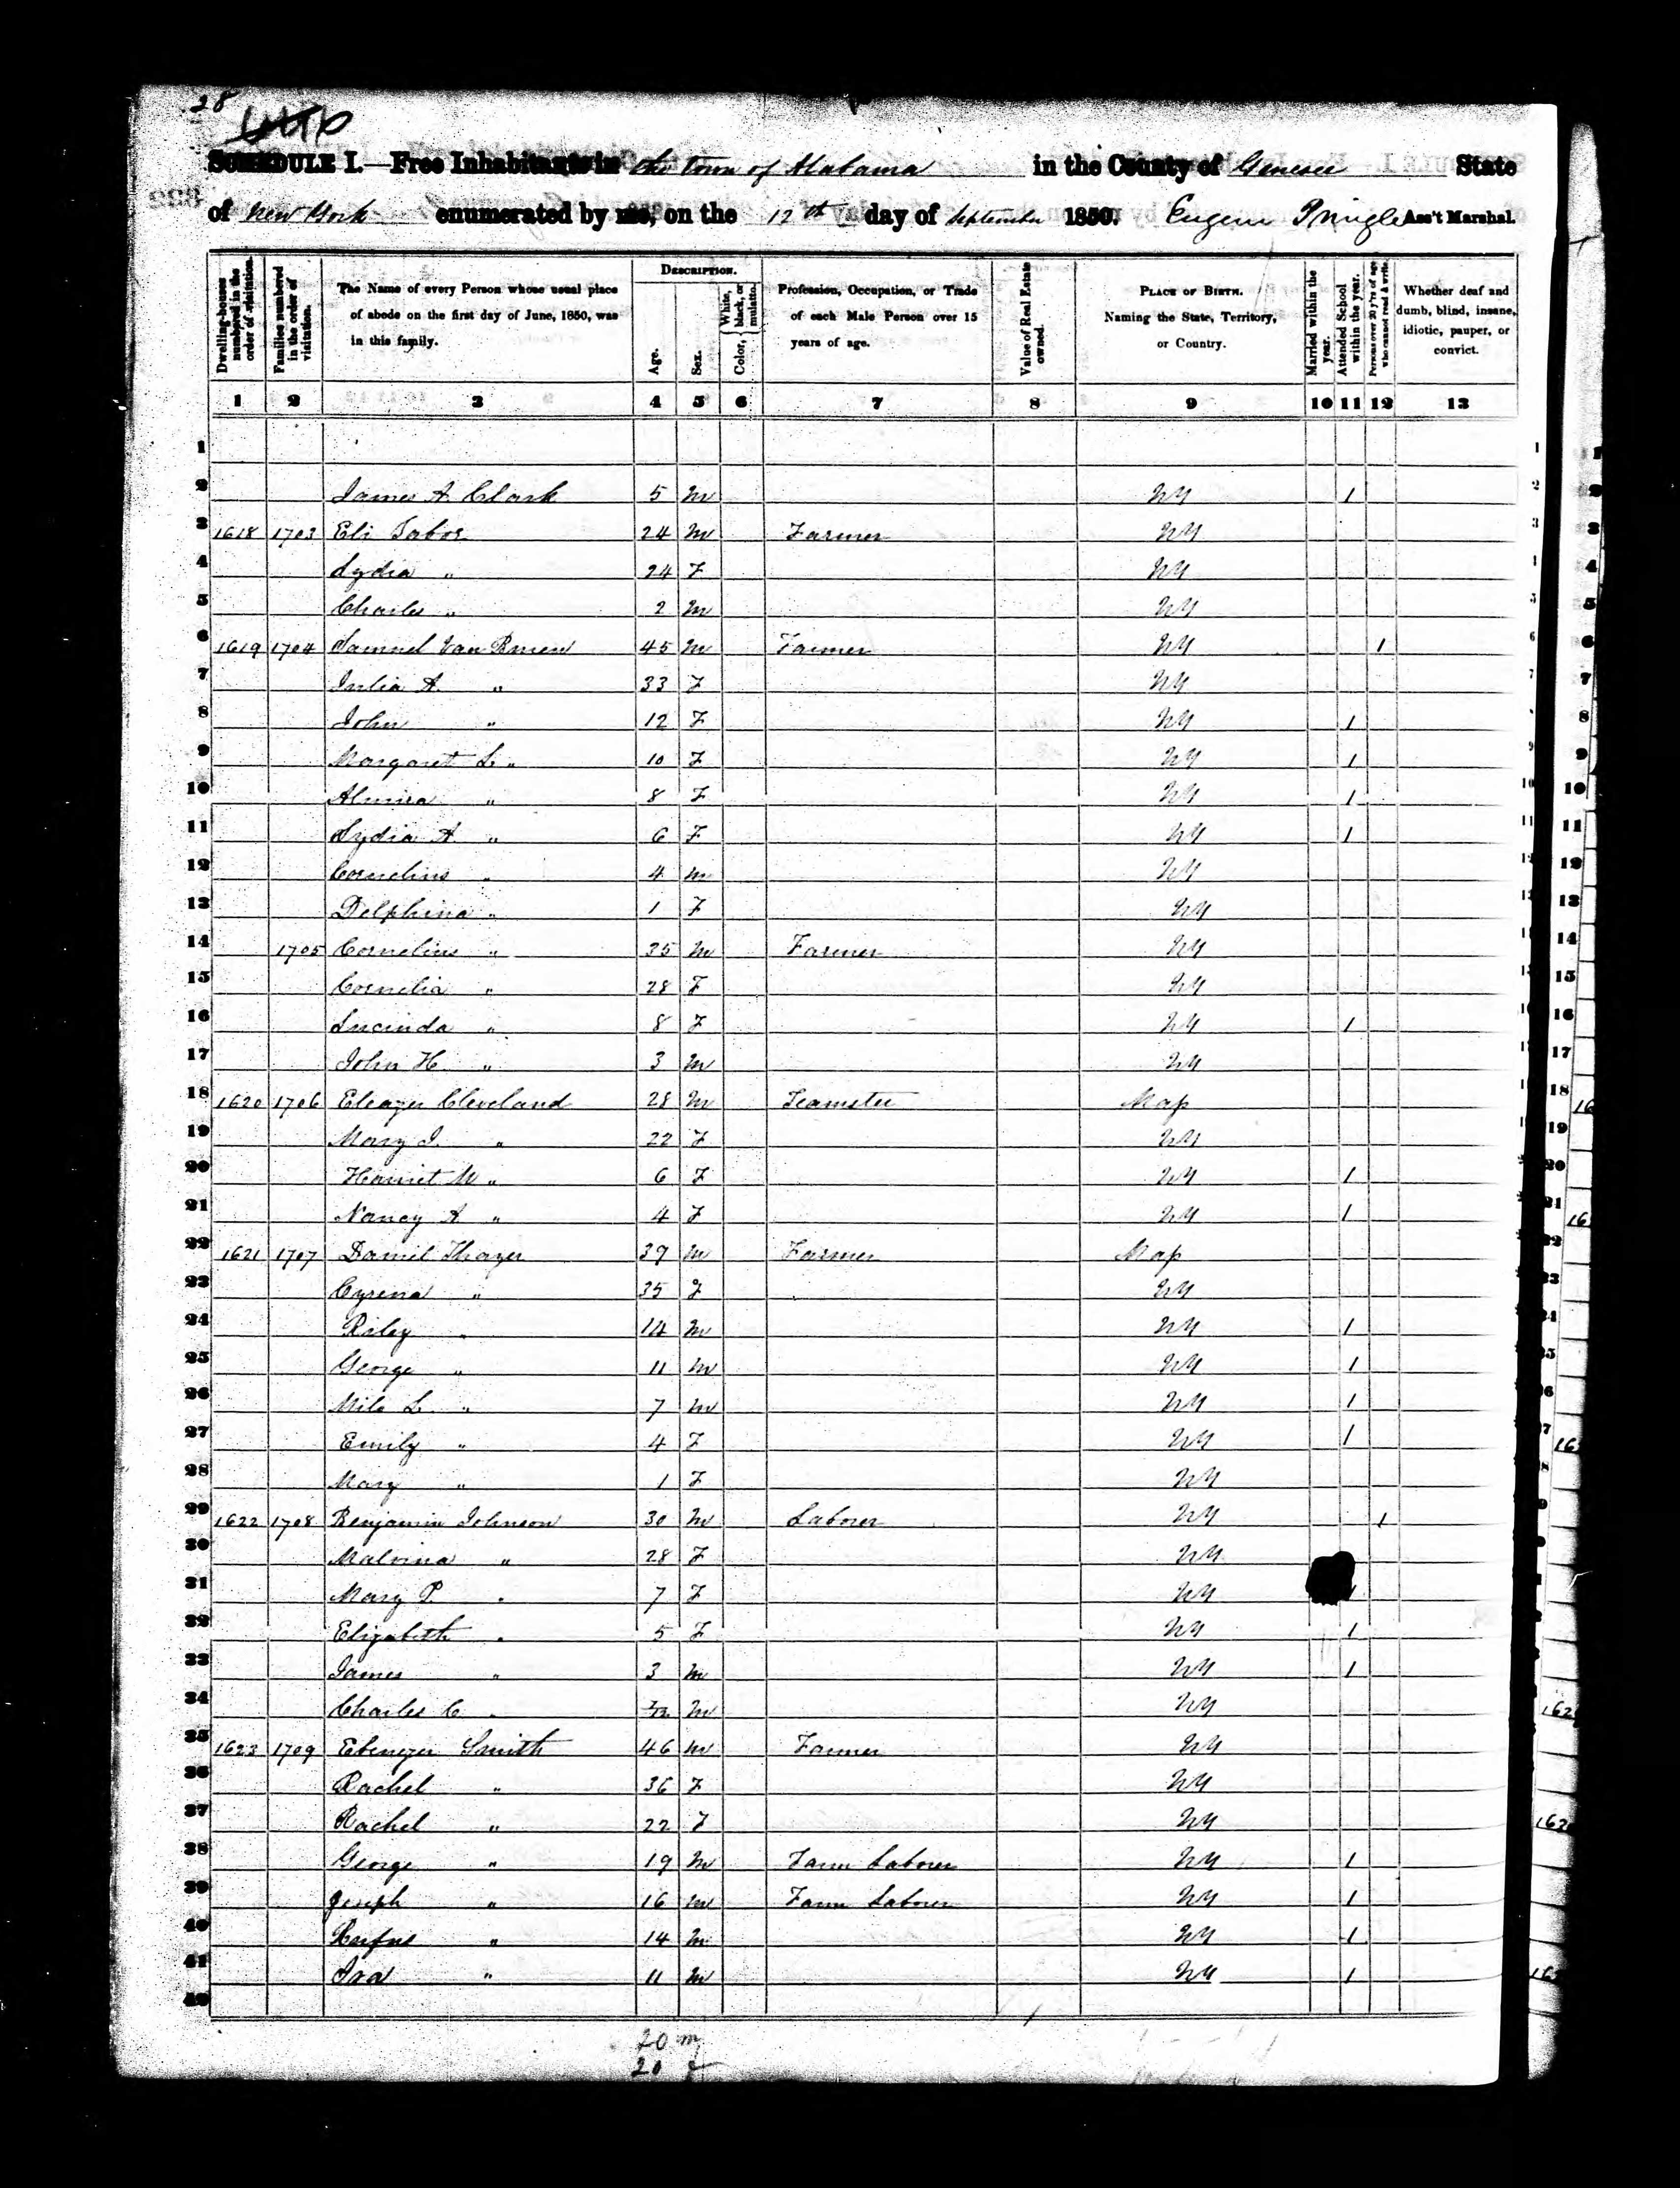 28
SCHEDULE I.—Free Inhabitants in the town of Alabama in the County of Genesee State
of New York enumerated by me, on the 12th day of September 1850. Eugene Pringle Ass't Marshal.
Dwelling-houses numbered in the order of visitation.
Families numbered in the order of visitation.
The Name of every Person whose usual place of abode on the first day of June, 1850, was in this family.
DESCRIPTION.
Age.
Sex.
Color, White, black, or mulatto.
Profession, Occupation, or Trade of each Male Person over 15 years of age.
Value of Real Estate owned.
PLACE OF BIRTH. Naming the State, Territory, or Country.
Married within the year.
Attended School within the year.
Persons over 20 y'rs of age who cannot read & write.
Whether deaf and dumb, blind, insane, idiotic, pauper, or convict.
1 2 3 4 5 6 7 8 9 10 11 12 13
1
2 James A Clark 5 M NY 1
3 1618 1703 Eli Tabor 24 M Farmer NY
4 Lydia " 24 F NY
5 Charles " 2 M NY
6 1619 1704 Samuel Van Buren 45 M Farmer NY 1
7 Julia A. " 33 F NY
8 John " 12 F NY 1
9 Margaret L. " 10 F NY 1
10 Almira " 8 F NY 1
11 Lydia A. " 6 F NY 1
12 Cornelius " 4 M NY
13 Delphina " 1 F NY
14 1705 Cornelius " 35 M Farmer NY
15 Cornelia " 28 F NY
16 Lucinda " 8 F NY 1
17 John H. " 3 M NY
18 1620 1706 Eleazer Cleveland 28 M Teamster Map
19 Mary J. " 22 F NY
20 Harriet M " 6 F NY 1
21 Nancy A " 4 F NY 1
22 1621 1707 Daniel Thayer 39 M Farmer Map
23 Cyrena " 35 F NY
24 Riley " 14 M NY 1
25 George " 11 M NY 1
26 Milo L. " 7 M NY 1
27 Emily " 4 F NY 1
28 Mary " 1 F NY
29 1622 1708 Benjamin Johnson 30 M Laborer NY 1
30 Malvina " 28 F NY
31 Mary P. " 7 F NY 1
32 Elizabeth " 5 F NY 1
33 James " 3 M NY 1
34 Charles C. " M NY
35 1623 1709 Ebenezer Smith 46 M Farmer NY
36 Rachel " 36 F NY
37 Rachel " 22 F NY
38 George " 19 M Farm Laborer NY 1
39 Joseph " 16 M Farm Laborer NY 1
40 Rufus " 14 M NY 1
41 Ira " 11 M NY 1
42
20 m
20 f